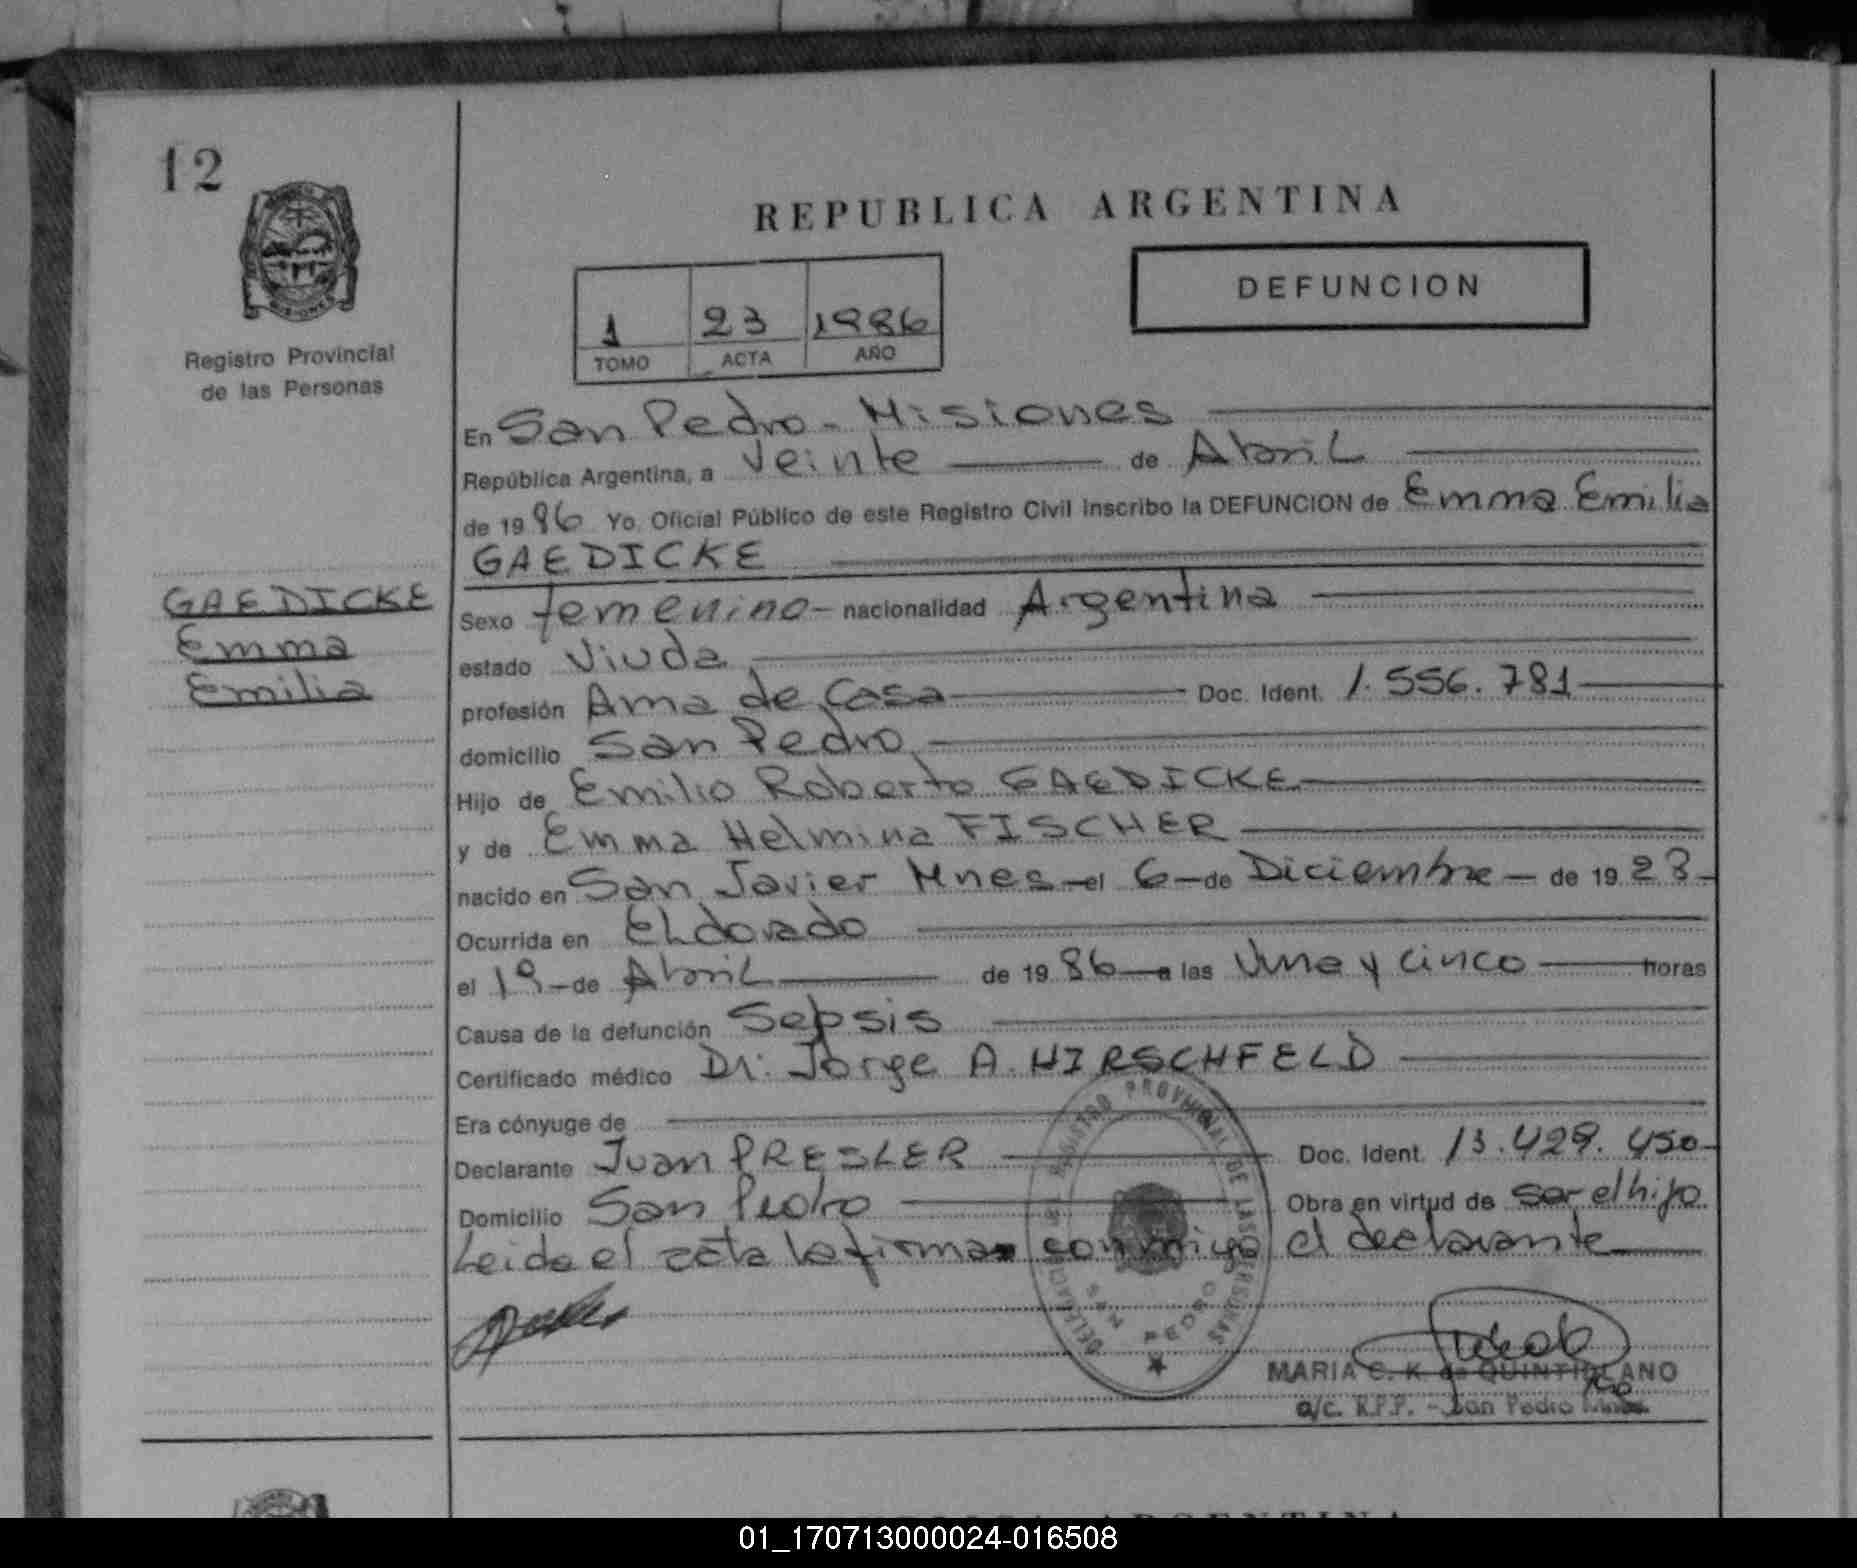 12
REPUBLICA ARGENTINA
DEFUNCION
1 23 1986
TOMO ACTA AÑO
Registro Provincial
de las Personas
GAEDICKE
Emma
Emilia
En San Pedro - Misiones
República Argentina, a Veinte de Abril
de 1986 Yo, Oficial Público de este Registro Civil inscribo la DEFUNCION de Emma Emilia
GAEDICKE
Sexo femenino - nacionalidad Argentina
estado Viuda
profesión Ama de Casa Doc. Ident. 1.556.781
domicilio San Pedro
Hijo de Emilio Roberto GAEDICKE
y de Emma Helmina FISCHER
nacido en San Javier Mnes - el 6 - de Diciembre - de 1923 -
Ocurrida en Eldorado
el 19 - de Abril de 1986 - a las Una y cinco horas
Causa de la defunción Sepsis
Certificado médico Dr. Jorge A. HIRSCHFELD
Era cónyuge de
Declarante Juan PRESLER Doc. Ident. 13.429.450 -
Domicilio San Pedro Obra en virtud de ser el hijo
Leida el acta la firma conmigo el declarante
DELEGACION REGISTRO PROVINCIAL DE LAS PERSONAS
SAN PEDRO
MARIA C. K. de QUINTIGLANO
a/c. R.P.P. - San Pedro Mnes.
REPUBLICA ARGENTINA
01_170713000024-016508